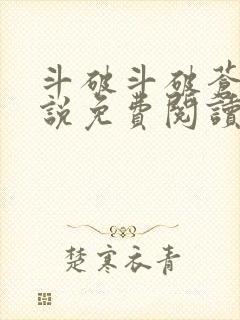 斗破斗破蒼
說免費閱讀
楚寒衣青